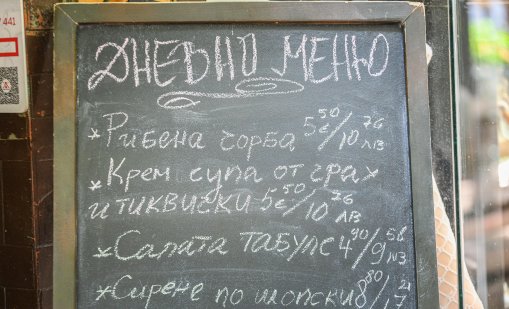 441
ДНЕВНО МЕНЮ
* Рибена чорба 5⁵⁰€/10⁷⁶лв
* Крем супа от грах
и тиквички 5⁵⁰€/10⁷⁶лв
* Салата табуле 4⁹⁰/9⁵⁸лв
* Сирене по шопски 8⁸⁰/17²¹